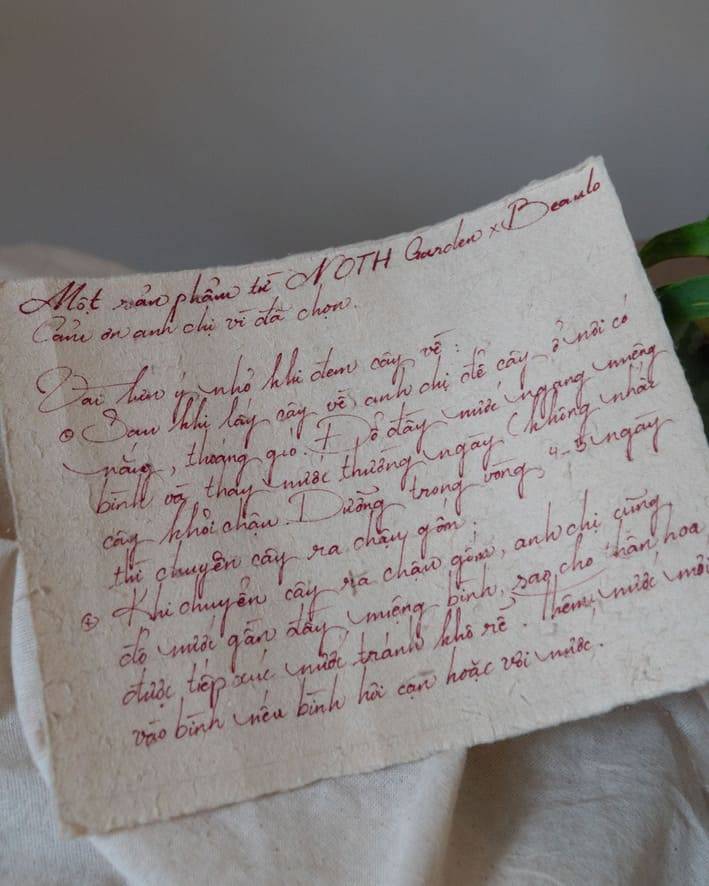 Một sản phẩm từ NOTH Garden x Beaulo
Cảm ơn anh chị vì đã chọn.
Vài lưu ý nhỏ khi đem cây về :
Sau khi lấy cây về anh chị để cây ở nơi có
nắng, thoáng gió. Đổ đầy nước ngang miệng
bình và thay nước thường ngày (không nhấc
cây khỏi chậu. Dưỡng trong vòng 4-5 ngày
thì chuyển cây ra chậu gốm.
Khi chuyển cây ra chậu gốm, anh chị cũng
đổ nước gần đầy miệng bình, sao cho thân hoa
được tiếp xúc nước tránh khô rễ. Thêm nước mới
vào bình nếu bình hơi cạn hoặc vơi nước.